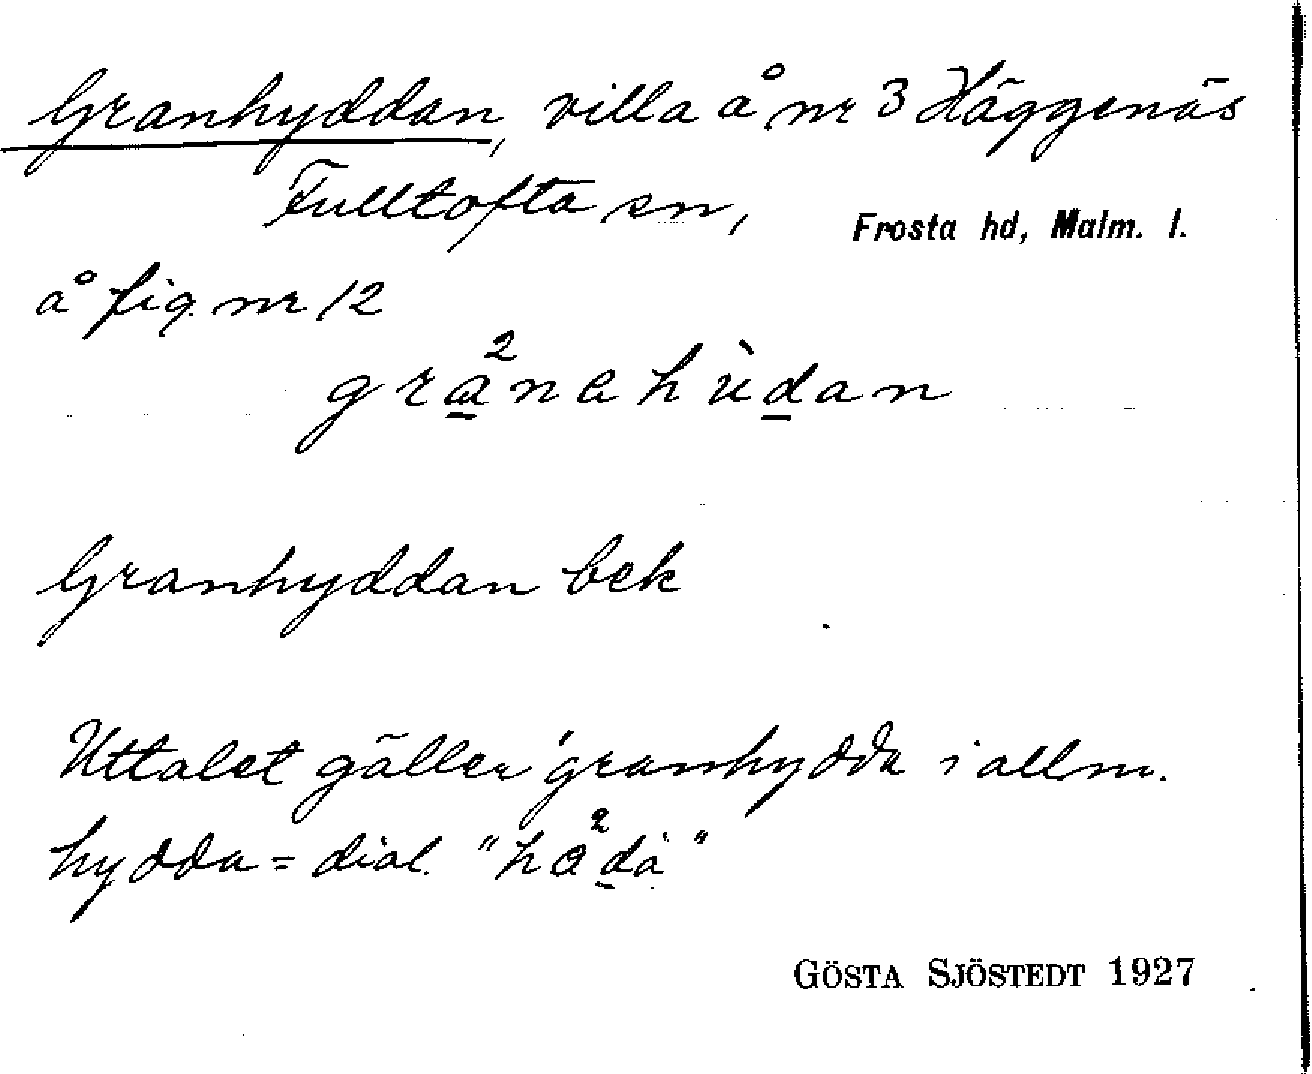 Granhyddan, villa å nr 3 Häggenäs
Fulltofta sn, Frosta hd, Malm. l.
å fig. nr 12
Granhyddan bek
Uttalet gäller 'granhydda i allm.
hydda = dial.
GÖSTA SJÖSTEDT 1927